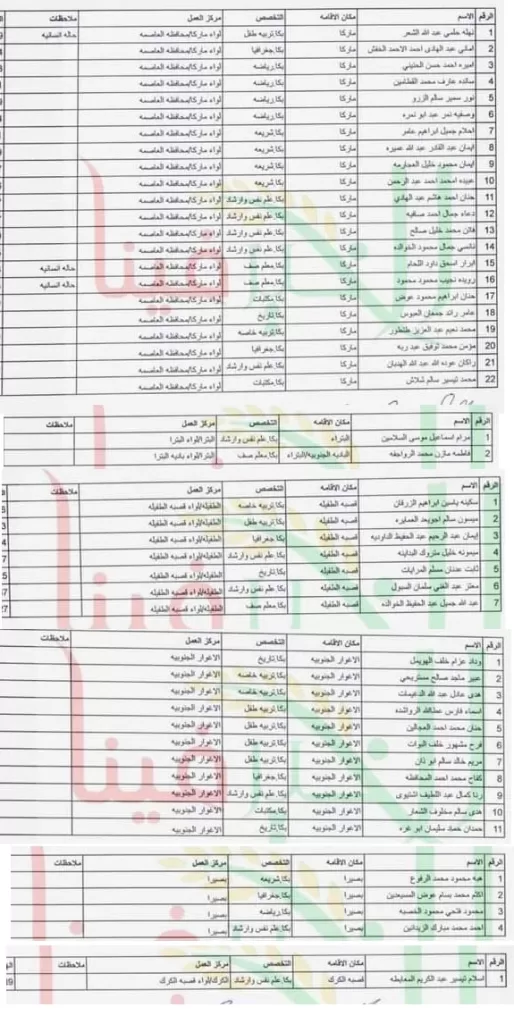 الرقم الاسم مكان الاقامه التخصص مركز العمل ملاحظات
1 نهله حلمي عبد الله الشعر ماركا بكا,تربيه طفل لواء ماركا/محافظه العاصمه حاله انسانيه
2 اماني عبد الهادي احمد الاحمد الخفش ماركا بكا,جغرافيا لواء ماركا/محافظه العاصمه
3 اميره احمد حسن الحنيني ماركا بكا,رياضه لواء ماركا/محافظه العاصمه
4 سائده عارف محمد القطامين ماركا بكا,رياضه لواء ماركا/محافظه العاصمه
5 نور سمير سالم الزرو ماركا بكا,رياضه لواء ماركا/محافظه العاصمه
6 وصفيه نمر عبد ابو نمره ماركا بكا,رياضه لواء ماركا/محافظه العاصمه
7 احلام جميل ابراهيم عامر ماركا بكا,شريعه لواء ماركا/محافظه العاصمه
8 ايمان عبد القادر عبد الله عميره ماركا بكا,شريعه لواء ماركا/محافظه العاصمه
9 ايمان محمود خليل المحارمه ماركا بكا,شريعه لواء ماركا/محافظه العاصمه
10 عبيده امحمد احمد عبد الرحمن ماركا بكا,شريعه لواء ماركا/محافظه العاصمه
11 حنان احمد هاشم عبد الهادي ماركا بكا,علم نفس وارشاد لواء ماركا/محافظه العاصمه
12 دعاء جمال احمد صافيه ماركا بكا,علم نفس وارشاد لواء ماركا/محافظه العاصمه
13 فاتن محمد خليل صالح ماركا بكا,علم نفس وارشاد لواء ماركا/محافظه العاصمه
14 نانسي جمال محمود الخوالده ماركا بكا,علم نفس وارشاد لواء ماركا/محافظه العاصمه
15 ابرار اسحق داود اللحام ماركا بكا,معلم صف لواء ماركا/محافظه العاصمه حاله انسانيه
16 رويده نجيب محمود محمود ماركا بكا,معلم صف لواء ماركا/محافظه العاصمه حاله انسانيه
17 حنان ابراهيم محمود عوض ماركا بكا,مكتبات لواء ماركا/محافظه العاصمه
18 عامر رائد العبوس ماركا بكا,تاريخ لواء ماركا/محافظه العاصمه
19 محمد نعيم عبد العزيز ماركا بكا,تربيه خاصه لواء ماركا/محافظه العاصمه
20 مؤمن محمد توفيق عبد ربه ماركا بكا,جغرافيا لواء ماركا/محافظه العاصمه
21 راكان عوده الله عبد الله الهدبان ماركا بكا,علم نفس وارشاد لواء ماركا/محافظه العاصمه
22 محمد تيسير سالم شلاش ماركا بكا,مكتبات لواء ماركا/محافظه العاصمه
الرقم الاسم مكان الاقامه التخصص مركز العمل ملاحظات
1 مرام اسماعيل موسى السلامين البتراء بكا,علم نفس وارشاد البترا/لواء البترا
2 فاطمه مازن محمد الرواجفه الباديه الجنوبيه/البتراء بكا,معلم صف البترا/لواء باديه البترا
الرقم الاسم مكان الاقامه التخصص مركز العمل ملاحظات
1 سكينه ياسين ابراهيم الزرقان قصبه الطفيله بكا,تربيه خاصه الطفيله/لواء قصبه الطفيله
2 ميسون سالم اجويعد العمايره قصبه الطفيله بكا,تربيه طفل الطفيله/لواء قصبه الطفيله
3 إيمان عبد الرحيم عبد الحفيظ قصبه الطفيله بكا,تربيه طفل الطفيله/لواء قصبه الطفيله
4 ميمونه خليل متروك البداينه قصبه الطفيله بكا,جغرافيا الطفيله/لواء قصبه الطفيله
5 ثابت عدنان مسلم المرايات قصبه الطفيله بكا,تاريخ الطفيله/لواء قصبه الطفيله
6 معتز عبد الغني سلمان السبول قصبه الطفيله بكا,علم نفس وارشاد الطفيله/لواء قصبه الطفيله
7 عبد الله جميل عبد الحفيظ الخوالده قصبه الطفيله بكا,معلم صف الطفيله/لواء قصبه الطفيله
الرقم الاسم مكان الاقامه التخصص مركز العمل ملاحظات
1 وداد عزام خلف الهويمل الاغوار الجنوبيه بكا,تاريخ الاغوار الجنوبيه
2 عبير ماجد صالح مستريحي الاغوار الجنوبيه بكا,تربيه خاصه الاغوار الجنوبيه
3 هدى عادل عبد الله الدغيمات الاغوار الجنوبيه بكا,تربيه خاصه الاغوار الجنوبيه
4 اسماء فارس عطاالله الرواشده الاغوار الجنوبيه بكا,تربيه طفل الاغوار الجنوبيه
5 حنان محمد احمد المجالين الاغوار الجنوبيه بكا,تربيه طفل الاغوار الجنوبيه
6 فرح مشهور خلف البوات الاغوار الجنوبيه بكا,تربيه طفل الاغوار الجنوبيه
7 مريم خالد سالم ابو الاغوار الجنوبيه بكا,تربيه طفل الاغوار الجنوبيه
8 كفاح محمد احمد المحافظه الاغوار الجنوبيه بكا,جغرافيا الاغوار الجنوبيه
9 رنا كمال عبد اللطيف اشتيوى الاغوار الجنوبيه بكا,علم نفس وارشاد الاغوار الجنوبيه
10 هدى سالم مخلوف الشمار الاغوار الجنوبيه بكا,مكتبات الاغوار الجنوبيه
11 حمدان حميد سليمان ابو غره الاغوار الجنوبيه بكا,تاريخ الاغوار الجنوبيه
الرقم الاسم مكان الاقامه التخصص مركز العمل ملاحظات
1 هبه محمود محمد الرفوع بصيرا بكا,شريعه بصيرا
2 اكثم محمد بسام عوض المسيعدين بصيرا بكا,جغرافيا بصيرا
3 محمود فتحي محمود الخصبه بصيرا بكا,رياضه بصيرا
4 احمد محمد مبارك الزيدانين بصيرا بكا,علم نفس وارشاد بصيرا
الرقم الاسم مكان الاقامه التخصص مركز العمل ملاحظات
1 اسلام تيسير عبد الكريم المعايطه قصبه الكرك بكا,علم نفس وارشاد الكرك/لواء قصبه الكرك